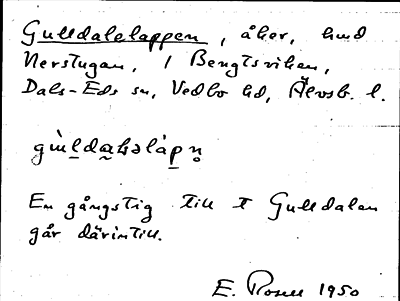 Gulldalslappen, åker, hmd
Nerstugan, 1 Bengtsviken,
Dals-Eds sn, Vedbo hd, Älvsb. l.
gùldaləlápn̥
En gångstig till t Gulldalen
går därintill.
E. Rosell 1950